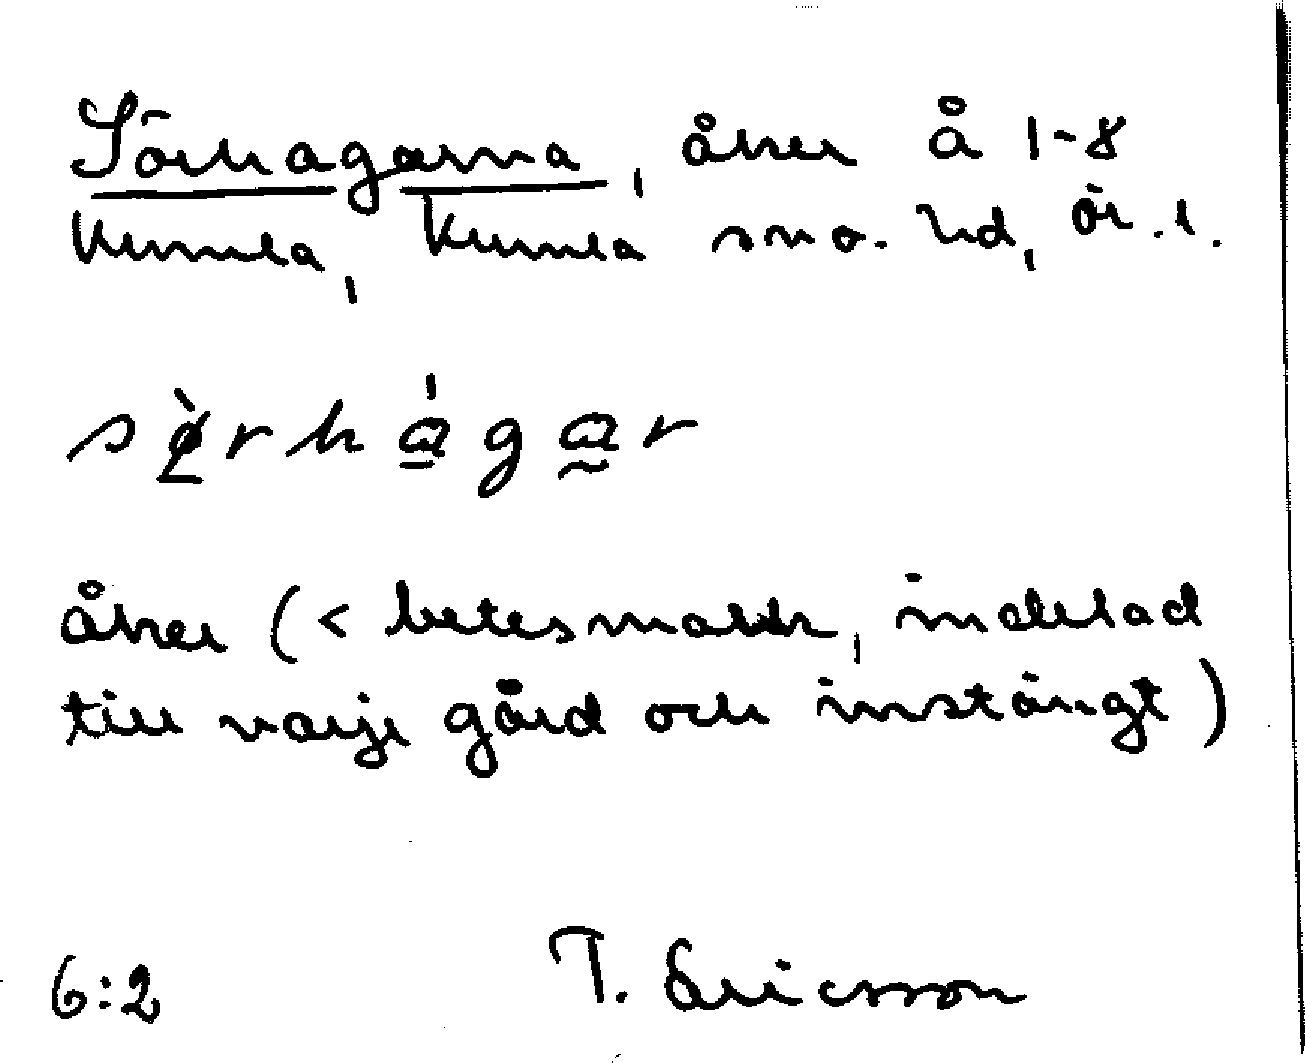 Sörhagarna, åker å 1-8
Kumla, Kumla sn o. hd, Ör. l.
sö̀rhágar
åker (< betesmark, indelad
till varje gård och instängt)
6:2 T. Ericsson